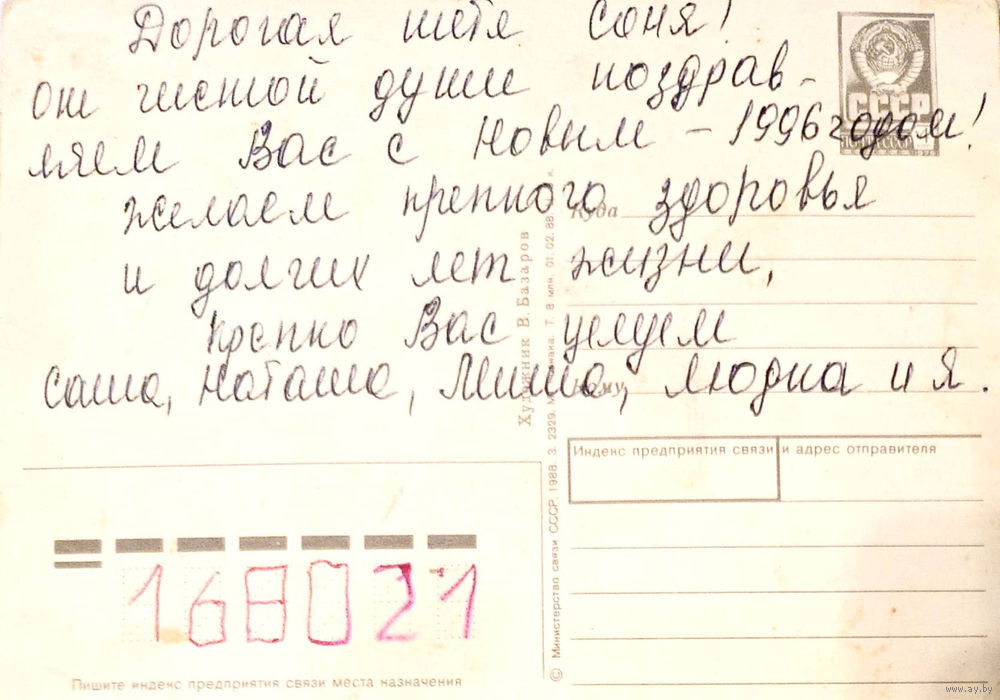 Дорогая тётя Соня!
от чистой души поздрав-
ляем Вас с Новым - 1996 годом!
желаем крепкого здоровья
и долгих лет жизни,
крепко Вас целуем
Саша, Наташа, Миша, Людка и я.
СССР
Куда
Кому
Художник В. Базаров
© Министерство связи СССР, 1988. З. 2329. Т. 8 млн. 01.02.88
Индекс предприятия связи и адрес отправителя
168021
Пишите индекс предприятия связи места назначения
www.ay.by